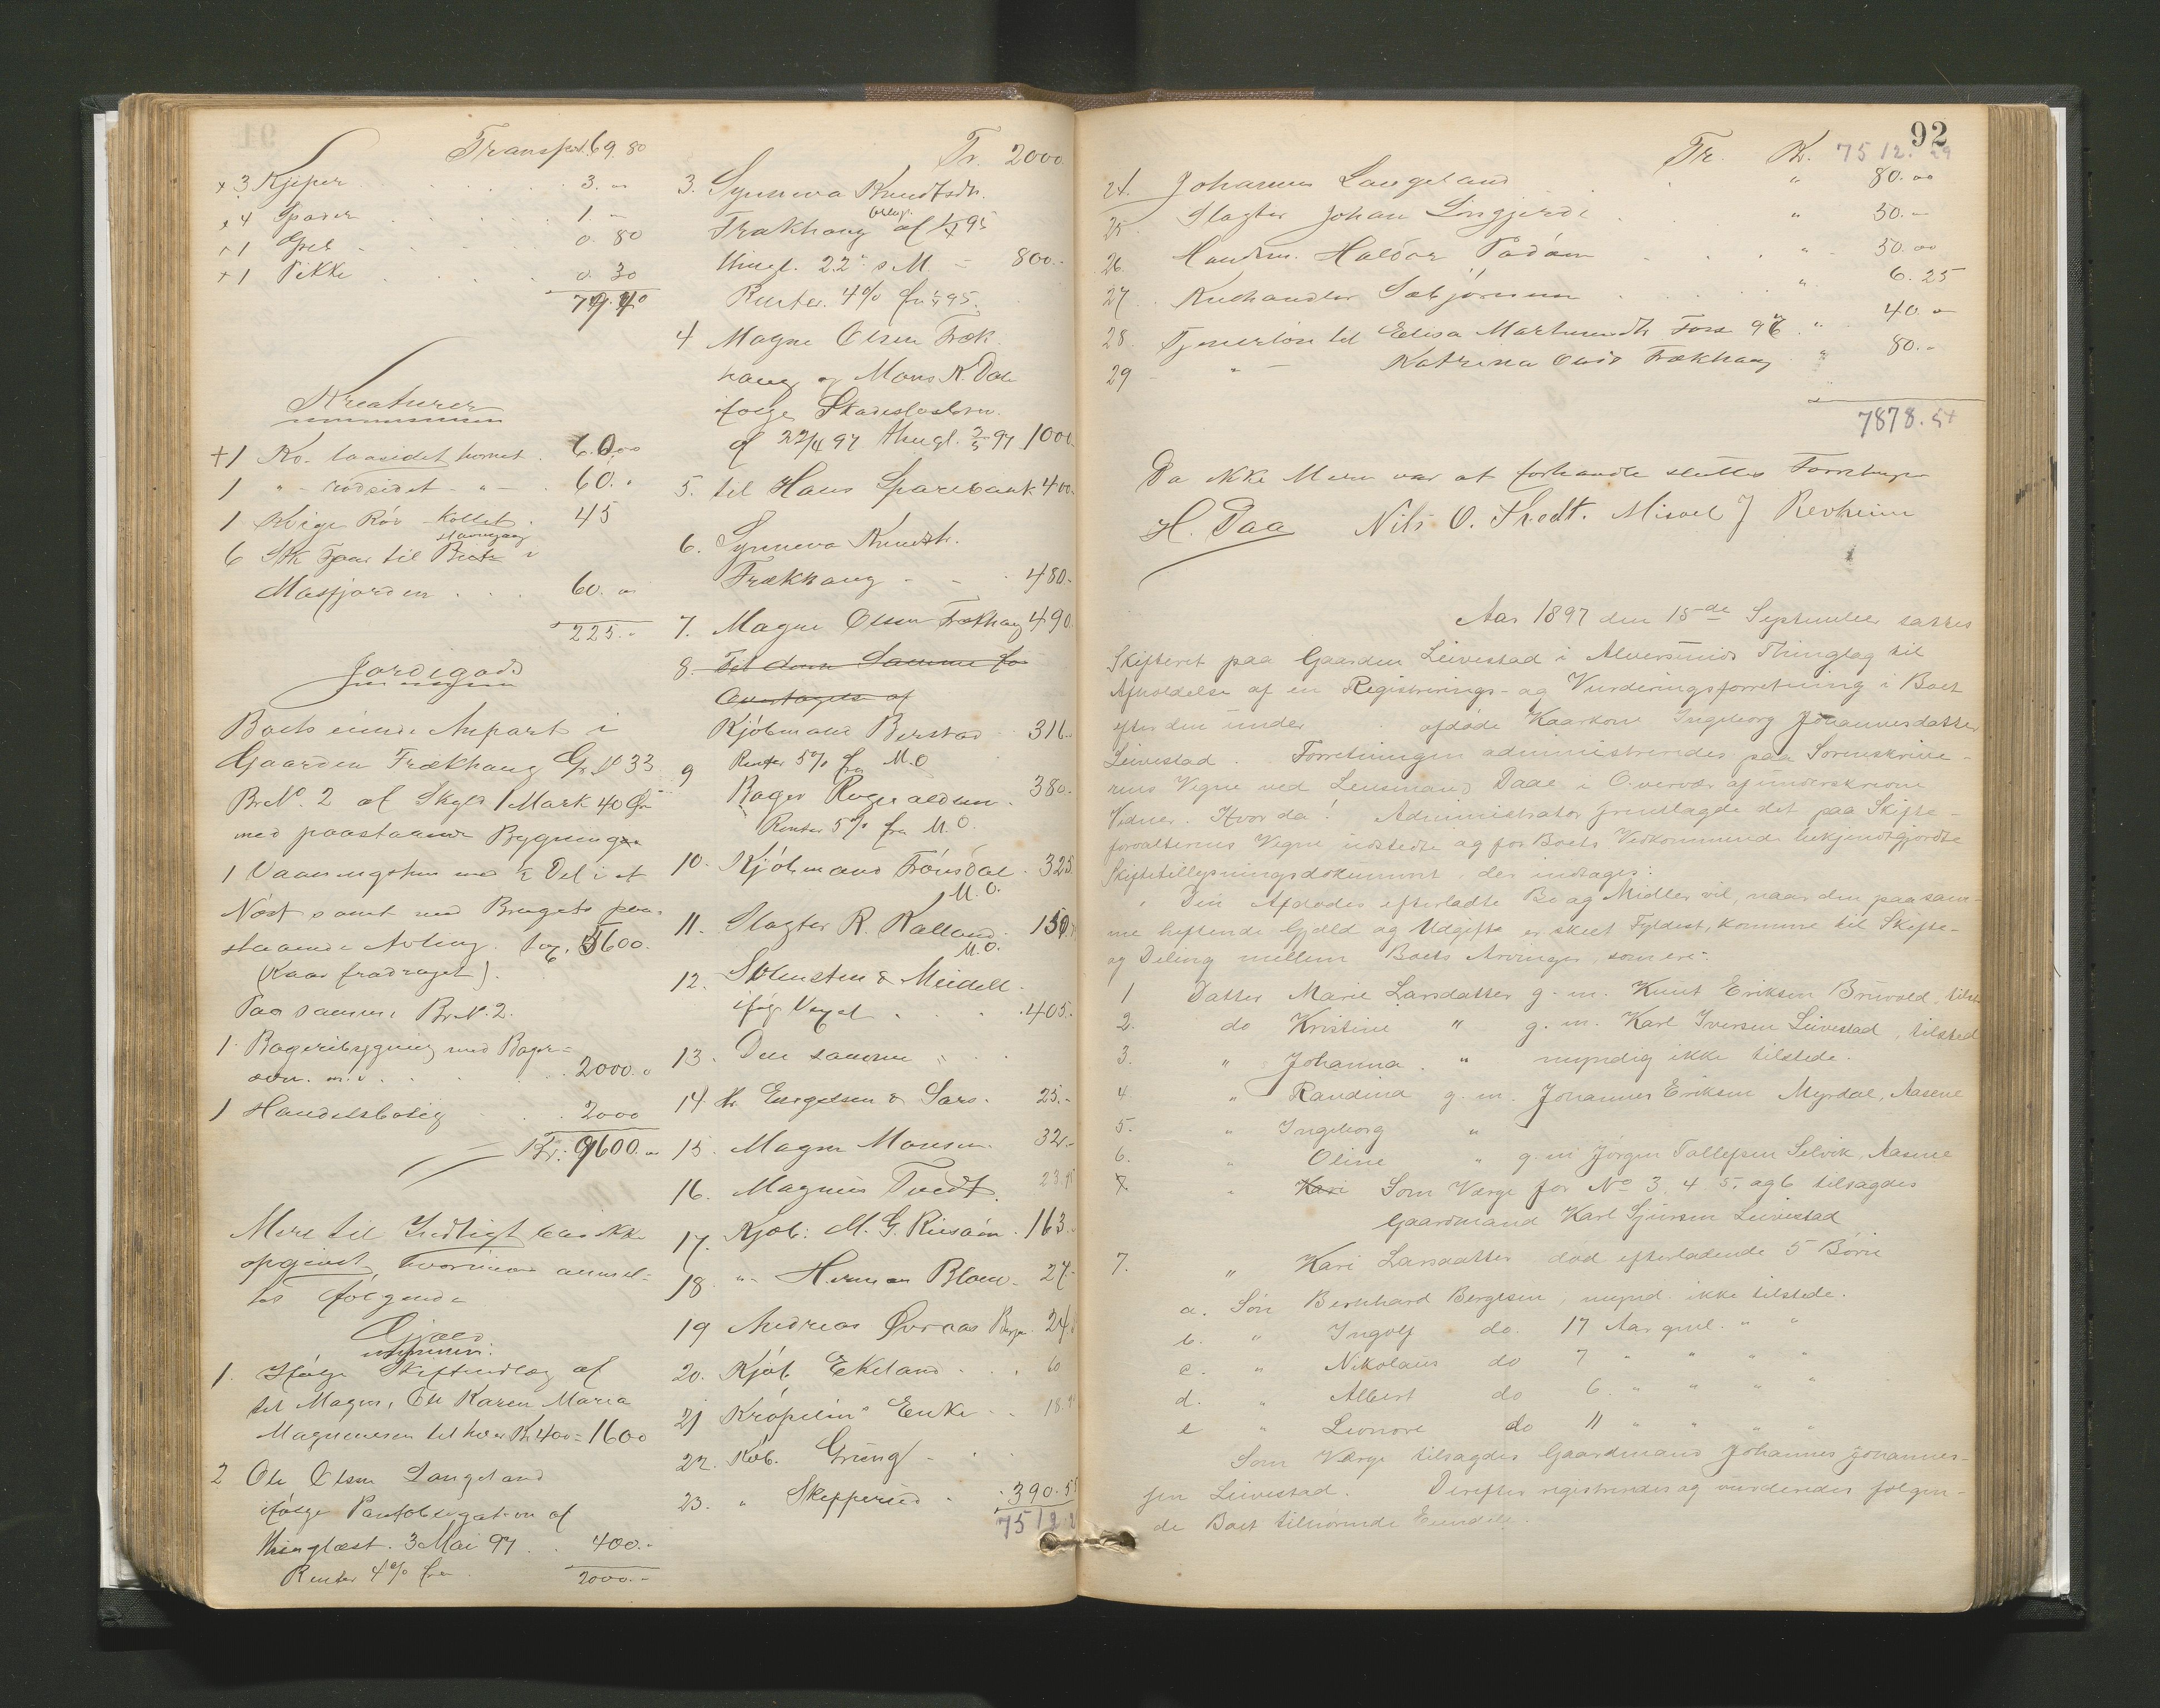 Transport 69 80
+ 3 Kjiper . . . . 3. "
+ 4 Spader . . . . 1. "
+ 1 Grel . . . . 0. 80
+ 1 Pikke . . . . 0. 30
Kreaturer
+1 Ko laasidet hornet . 60.00
1 " rödsidet " . 60. "
1 Kvige Röd Kollet . 45
6 Stk Faar til i
Masfjorden . . . 60. "
225. "
Jordegods
Boets eiende Anpart i
Gaarden Trækhaug G No 33
BrNo. 2 af Skyld 1 Mark 40 Öre
med paastaaende Bygninger
1 Vaaningshus med ½ Del i et
Nöst samt med Brugets paa-
staaende Avling. 5600.
(Kaar fradraget)
Paa samme BrN. 2.
1 Bageribygning med Bager-
ovn. m.v. . . . 2000. "
1 Handelsbolig . . 2000
Kr: 9600. "
Mere til Indtægt blev ikke
opgivet, hvorimod anmel-
tes følgende
Gjæld
1. Ifølge Skifteudlæg af
til Magne, Ole Karen Maria
Magnesen til hver Kr 400 = 1600
2 Ole Olsen Langeland
ifølge Pantobligation af
thinglæst. 3 Mai 97 . . 400. "
Renter 4% fra
2000. "
Tr. 2000
3. Synneva Knudtsdtr.
Trækhaug af 95
thingl. 22 s M. - 800. -
Renter. 4% fra 95.
4 Magne Olsen Træk-
haug og Mons K. Dale
ifølge Skadesløsbrev
af 22/4 97 thingl. 97 1000
5. til Haus Sparebank 400.
6. Synneva Knudtsdtr.
Trækhaug - - . 480. -
7. Magne Olsen Trækhaug 490
8. Til den Samme for
Overtagelse af
Kjöbmand Berstad 316.
Renter 5% fra M.O
9 Bager Rognaldsen . 380. -
Renter 5% fra M.O.
10. Kjöbmand Frönsdal . 325
M.O.
11. Slagter R. Kalland. 150
M.O.
12. & Meidell
ifölge Vexel . . . 405. -
13. Den samme " . .
14. Hr Engelsen & Sars. 25. -
15. Magne Monsen. 32. -
16. Magnus Tvedt. 23.
17. Kjöb: M. G. . 163.
18. " Herman Blom. 27. -
19 Andreas 24
20. Kjöb Ekeland . . . 60
21 Kröpelins Enke . . 18.
22. Köb. Grung - . .
23. " Skeppersed . 390.
7512.
92
Tr. Kr. 7512. 29
24. Johannes Langeland . . . " 80. 00
25. Slagter Johan Lingjerde . . " 30. -
26. Handm. Haldor . . . " 30. 00
27. Kuehandler Sæbjörnsen . . . " 6. 25
28. Tjenerlön til Elisa Martinsdtr " 40. -
29 - " - Katrina Olsd Trækhaug " 80. -
7878. 54
Da ikke Mere var at forhandle sluttes Forretningen
H. Daa Nils O. Misvel J Revheim
Aar 1897 den 15de September sattes
Skifteret paa Gaarden Leivestad i Alversunds Thinglag til
Afholdelse af en Registrerings- og Vurderingsforretning i Boet
efter den under afdøde Kaarkone Ingeborg Johannesdatter
Leivestad. Forretningen administreredes paa Sorenskrive-
rens Vegne ved Lensmand Daae i Overvær af underskrevne
Vidner. Hvor da! Administrator fremlagde det paa Skifte-
forvalterens Vegne udstedte og for Boets Vedkommende bekjendtgjordte
Skiftetillysningsdokument, der indtages:
" Den Afdödes efterladte Bo og Midler vil, naar den paa sam-
me heftende Gjæld og Udgifter er skeet Fyldest, komme til Skifte
og Deling mellem Boets Arvinger, som ere:
1 Datter Marie Larsdatter g. m. Knut Eriksen Bruvold, tilst
2. do Kristine " g. m. Karl Iversen Leivestad, tilsted
3. " Johanna. " myndig ikke tilstede.
4 " Randina g. m. Johannes Eriksen Myrdal, Aasene
5. " Ingeborg "
6. " Oline " g. m Jörgen Tollefsen Selvik, Aasene
7. " Kari Som Værge for No 3. 4 5. og 6 tilsagdes
Gaardmand Karl Sjursen Leivestad
7. " Kari Larsdatter död efterladende 5 Börn
a. Sön Bernhard Bergesen, mynd. ikke tilstede.
b. " Ingolf do. 17 Aar gml. " "
c. " Nikolaus do 7 " " " "
d. " Albert do 6. " " " "
e " Leonore do 11 " " " "
Som Værge tilsagdes Gaardmand Johannes Johannes-
sen Leivestad. Derefter registreredes og vurderedes følgen-
de Boet tilhörende Eiendele.